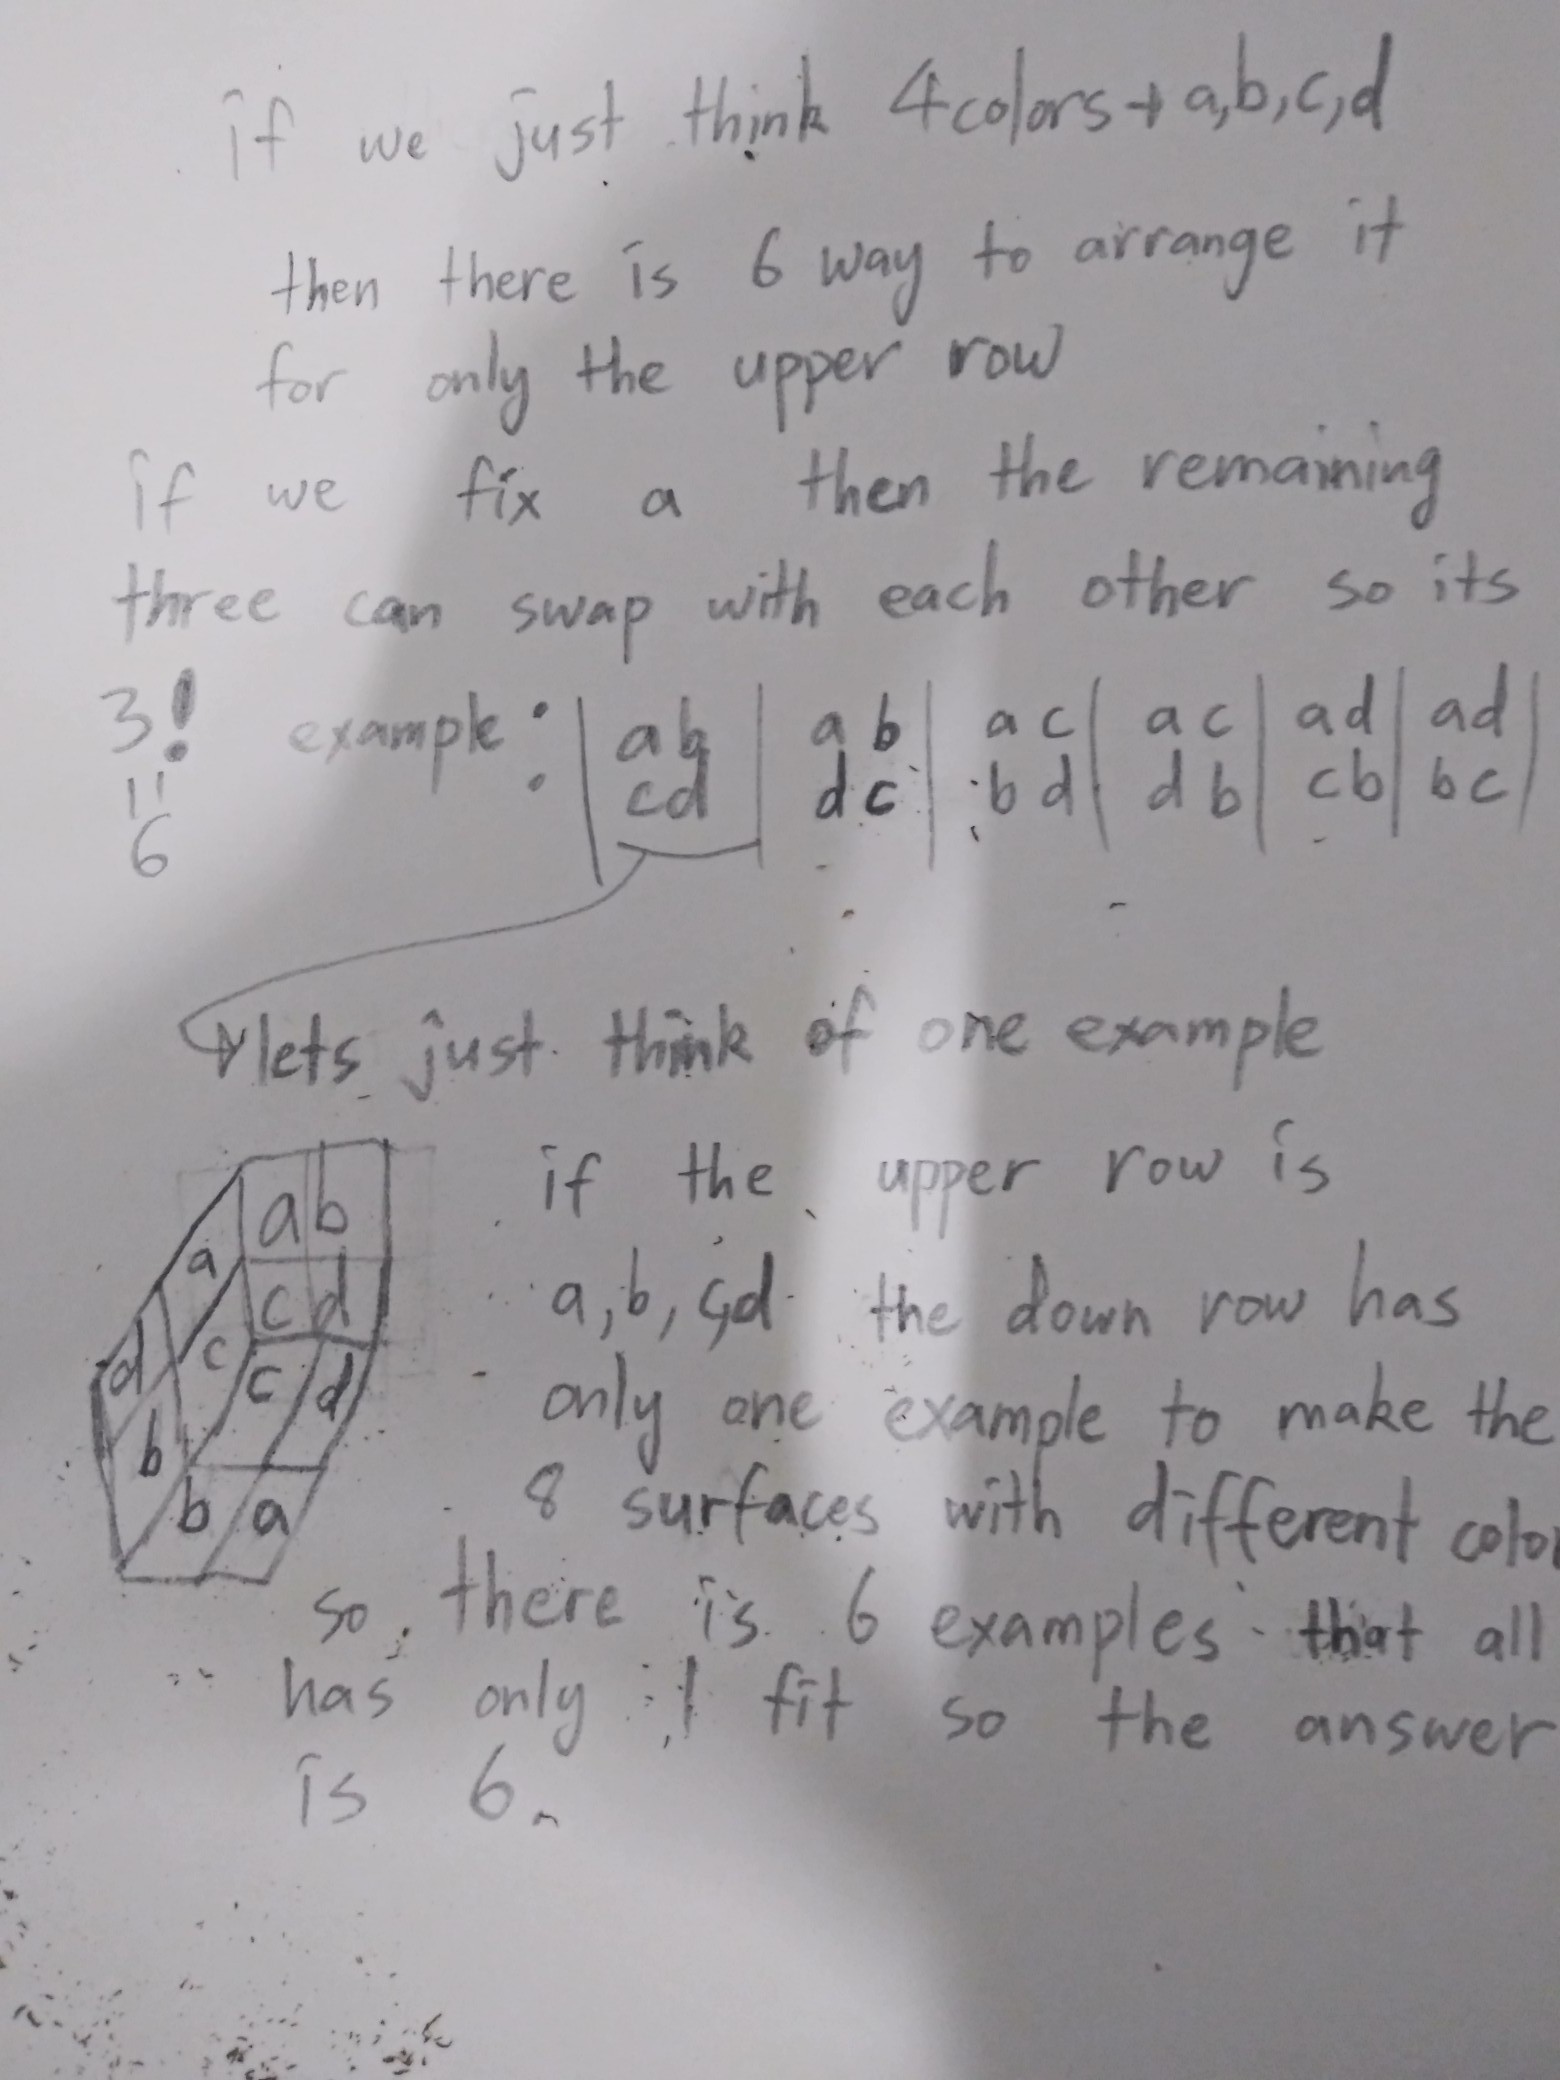 if we just think 4colors → a,b,c,d
then there is 6 way to arrange it
for only the upper row
if we fix a then the remaining
three can swap with each other so its
3! example : | ab | ab | ac | ac | ad | ad |
cd | dc | bd | db | cb | bc |
=
6
lets just think of one example
ab
cd
a
c
d
b
c d
b a
if the upper row is
a,b,c,d the down row has
only one example to make the
8 surfaces with different color
so there is 6 examples that all
has only 1 fit so the answer
is 6.